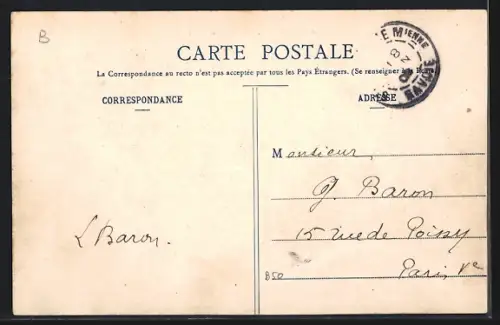 B
CARTE POSTALE
La Correspondance au recto n'est pas acceptée par tous les Pays Étrangers. (Se renseigner à la Poste)
CORRESPONDANCE
ADRESSE
Monsieur,
G. Baron
15 rue de Poissy
Paris Ve
L Baron.
B50